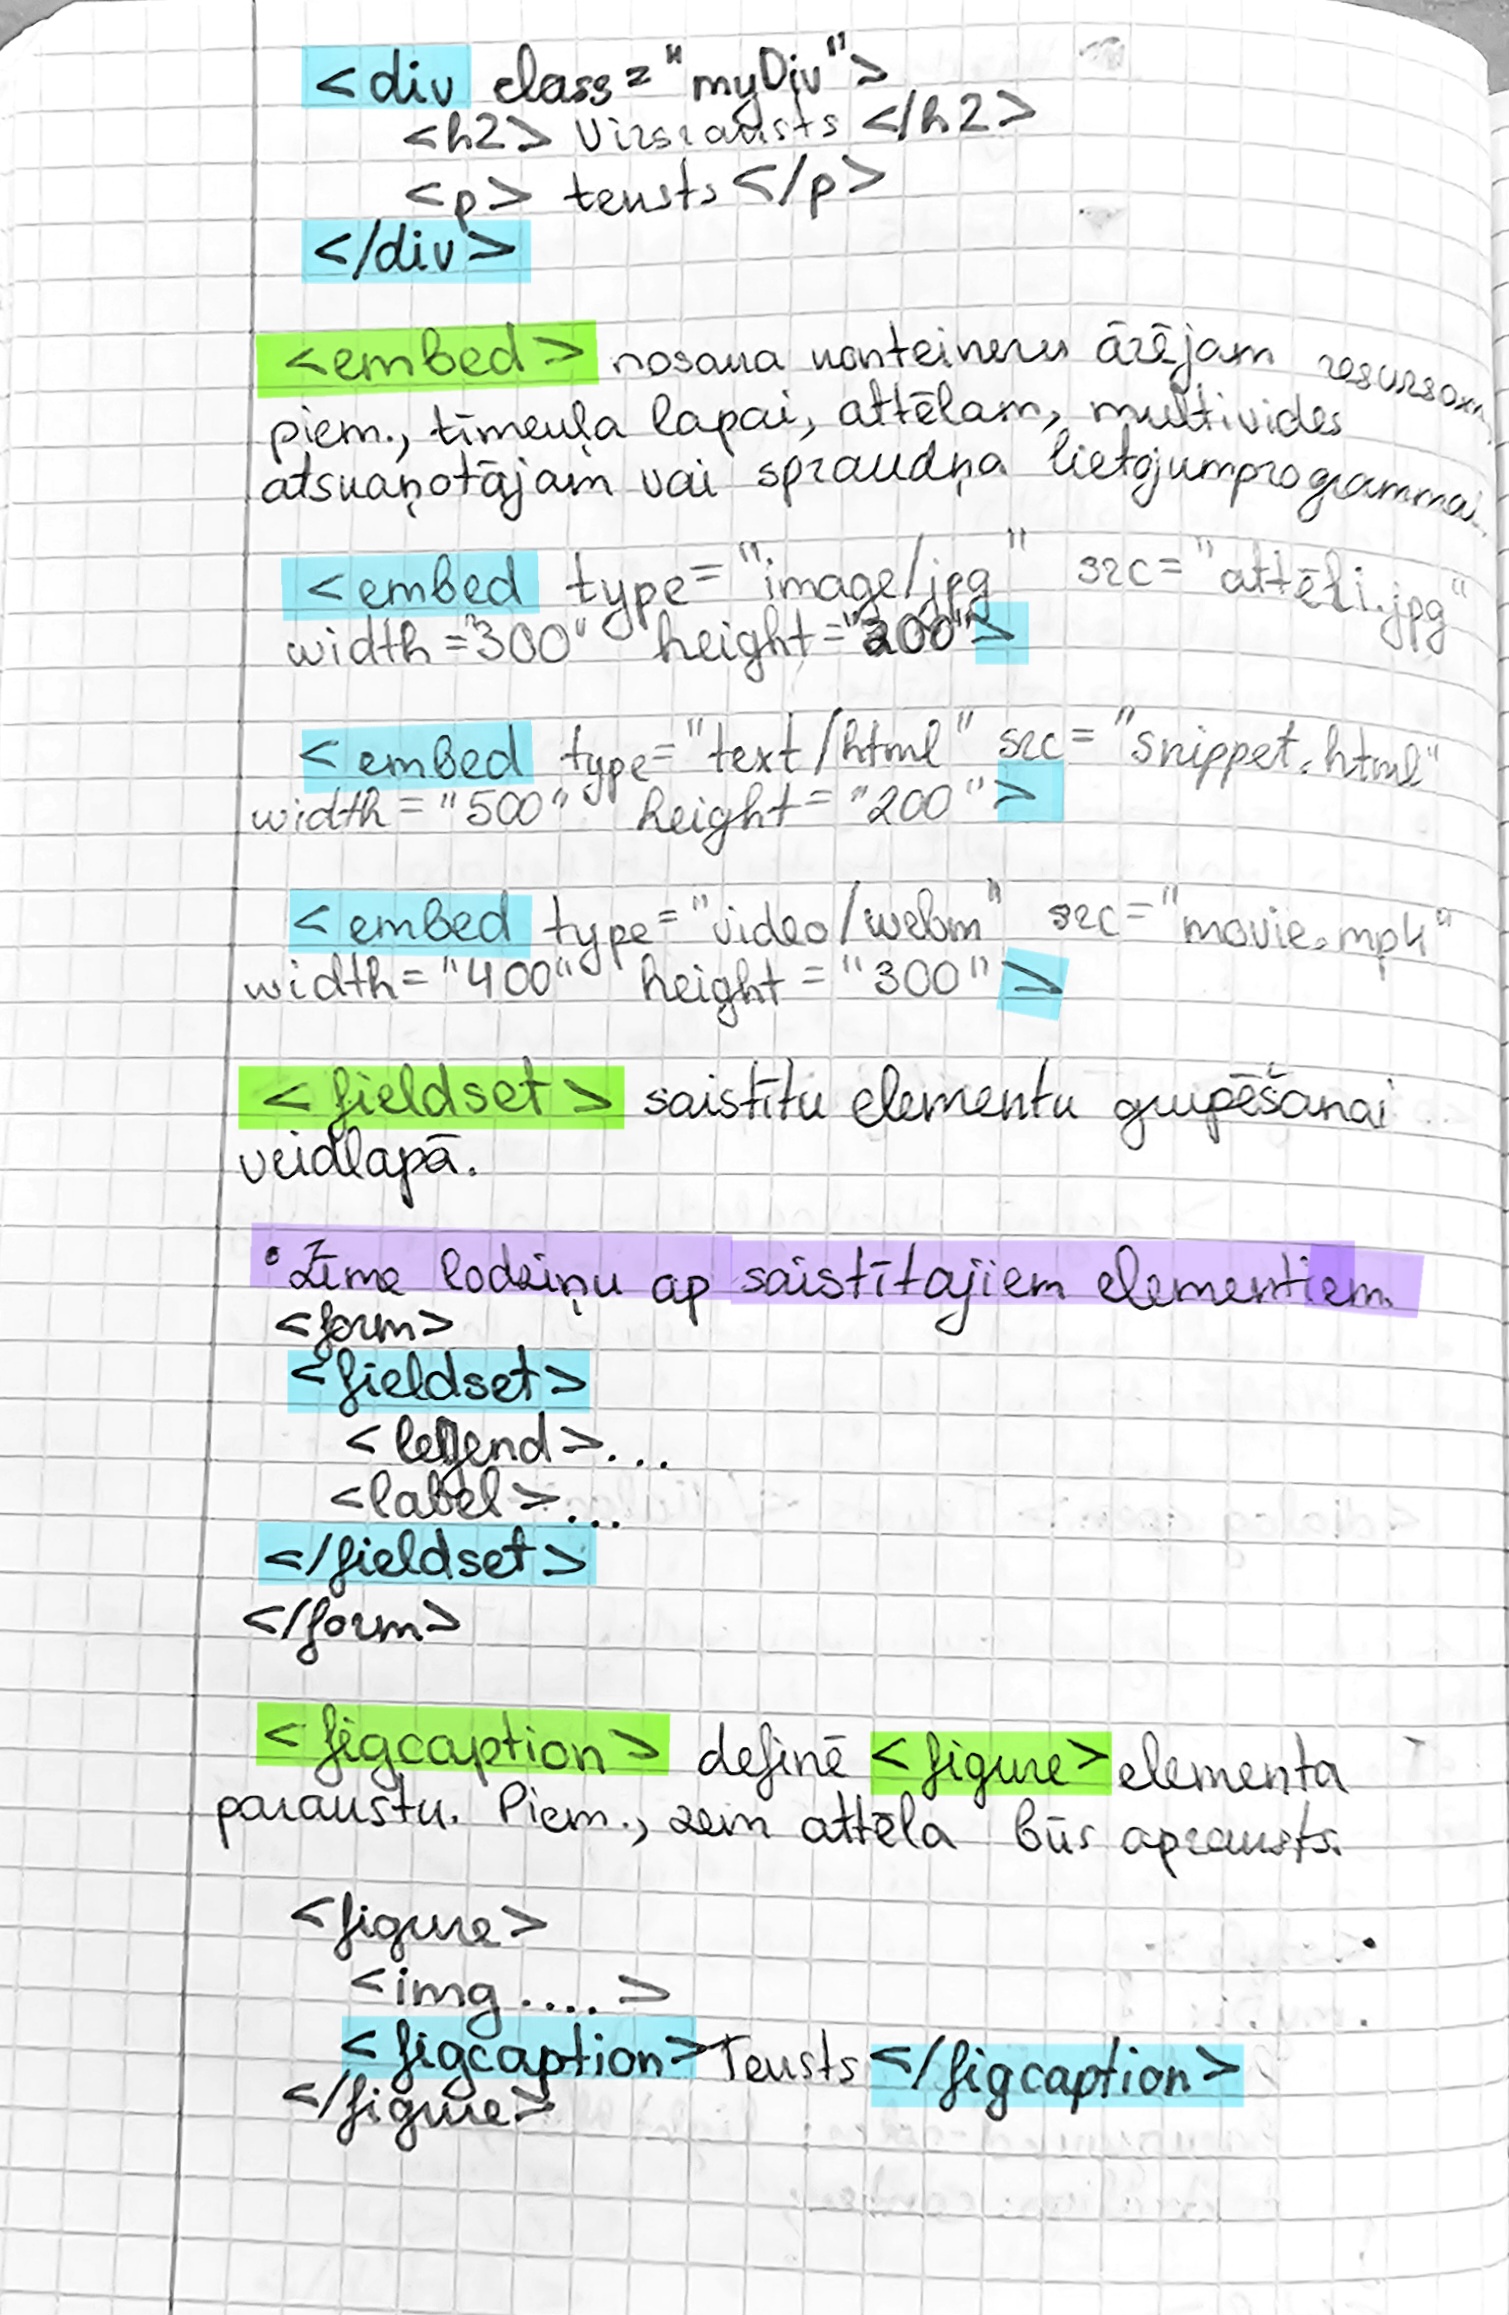 <div class="myDiv">
<h2> Virsraksts </h2>
<p> teksts </p>
</div>
<embed> nosaka konteineru ārējam resursam,
piem., tīmekļa lapai, attēlam, multivides
atskaņotājam vai spraudņa lietojumprogrammai.
<embed type="image/jpg" src="attēli.jpg"
width="300" height="200">
<embed type="text/html" src="snippet.html"
width="500" height="200">
<embed type="video/webm" src="movie.mp4"
width="400" height="300">
<fieldset> saistītu elementu grupēšanai
veidlapā.
• Zīmē lodziņu ap saistītajiem elementiem.
<form>
<fieldset>
<legend>...
<label>...
</fieldset>
</form>
<figcaption> definē <figure> elementa
parakstu. Piem., zem attēla būs apraksts.
<figure>
<img ....>
<figcaption> Teksts </figcaption>
</figure>